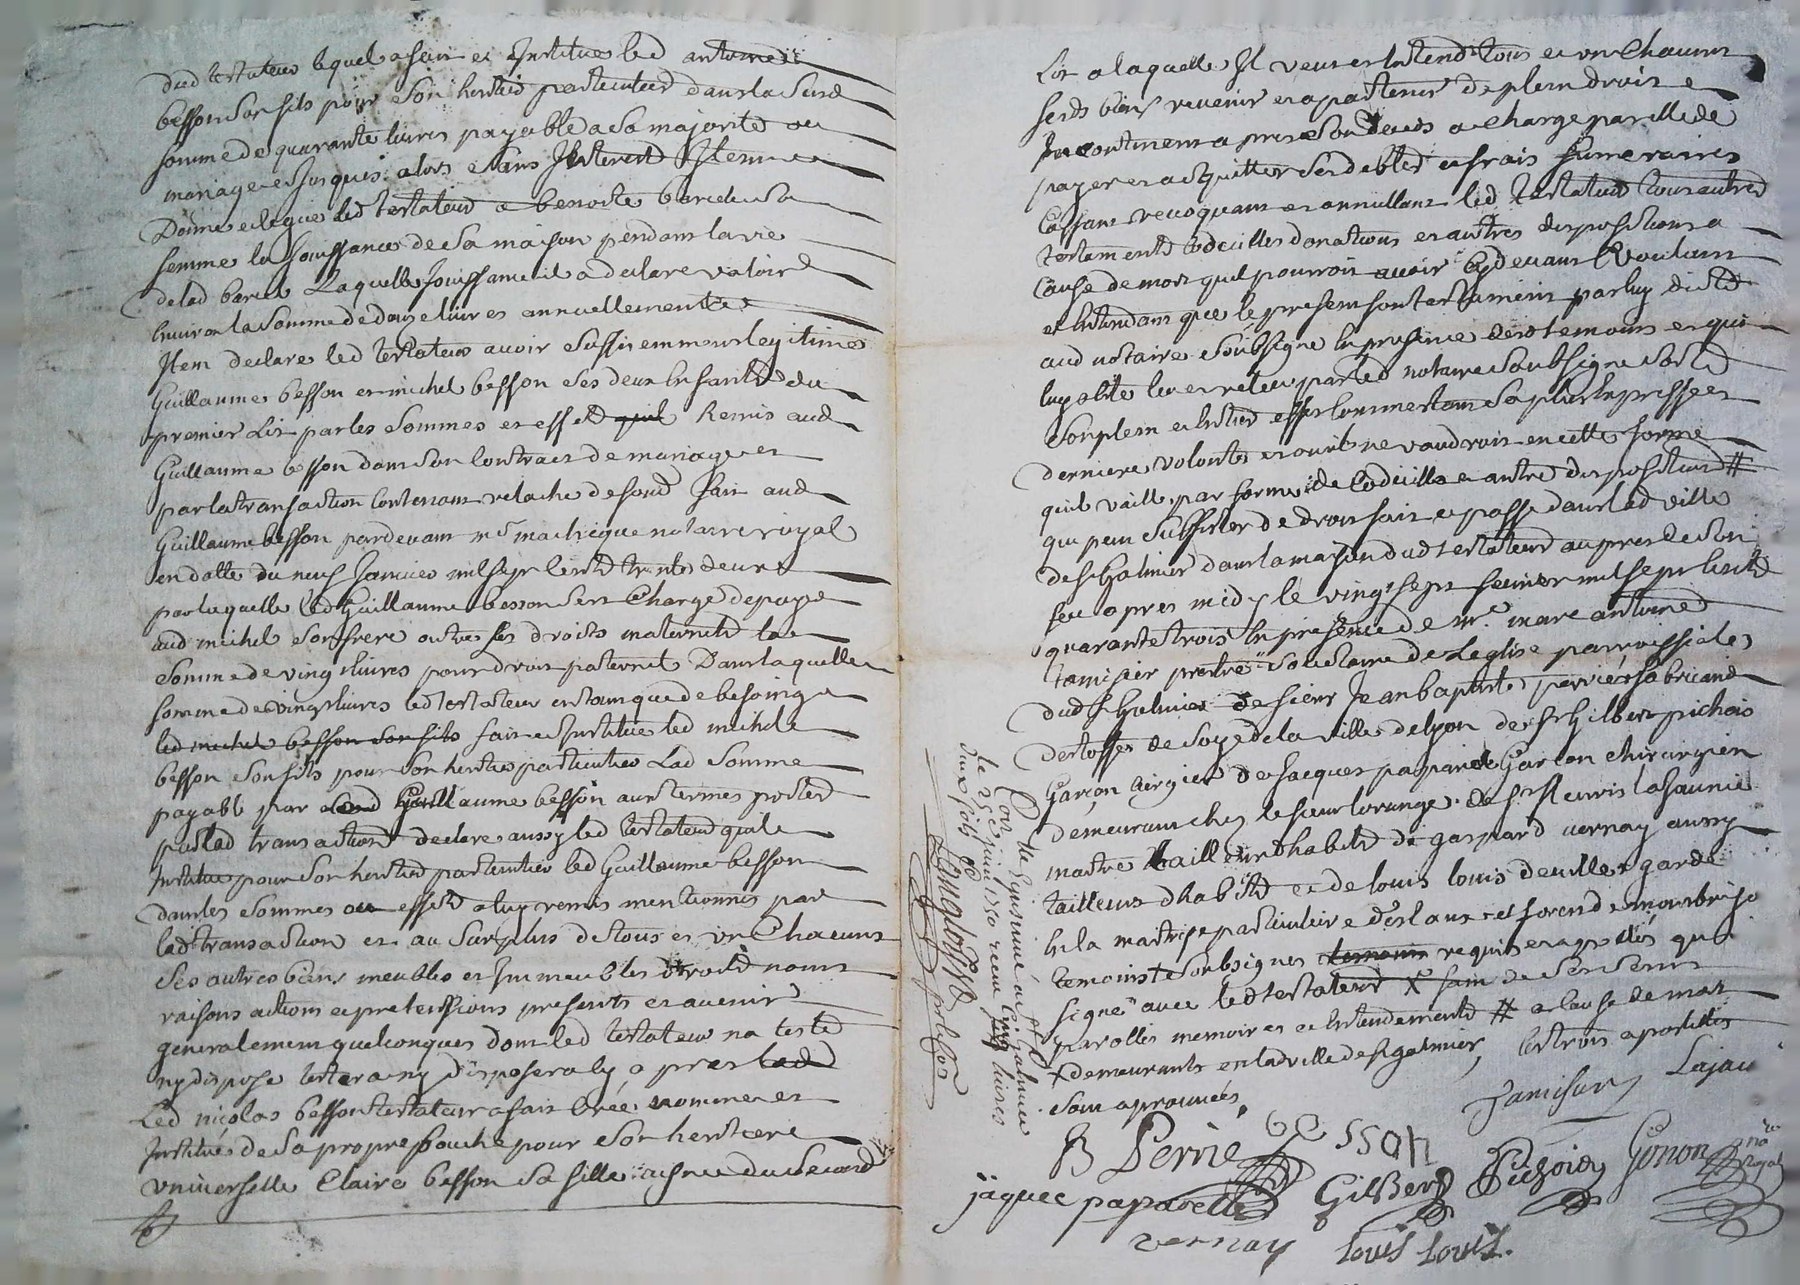 dud testateur lequel a fait et Institue led antoine
besson son fils pour son heritier particulier dans la susd
somme de quarante livres payable a sa majorité ou
mariage et jusques alors sans Interest Item
Donne et legue led testateur a benoite barcel sa
femme la jouissance de sa maison pendant la vie
de lad barcel Laquelle Jouissance il a declaré valoir
Environ la somme de douze livres annuellement
Item declare led testateur avoir suffisemment legitimé
Guillaume besson et michel besson ses deux Enfants du
premier Lit par les sommes et effets quil Remis aud
Guillaume besson dans son Contract de mariage et
par la transaction Contenant relache de fond fait aud
Guillaume besson pardevant me notaire royal
en datte du neuf Janvier mil sept Cents trente deux
par laquelle led Guillaume besson sera Chargé de payer
aud michel son frere outre ses droits maternels la
somme de vingt livres pour droit paternel Dans laquelle
somme de vingt livres led testateur en tant que de besoing
led michel besson son fils fait et Institue led michel
besson son fils pour son heritier particulier Lad Somme
payable par led Guillaume besson aux termes portés
par lad transaction declare aussy led testateur quil
Institue pour son heritier particulier led Guillaume besson
dans les sommes ou effets a luy remis mentionnés par
lad transaction et au surplus de tous et un Chacuns
ses autres biens meubles et Immeubles droits noms
raisons actions et pretenssions presents et avenir
generalement quelconques dont led testateur na testé
ny disposé testera ny disposera cy apres led
Led nicolas besson testateur a fait Créé, nommé et
Institué de sa propre bouche pour son heritiere
universelle Claire besson sa fille aisnée du second
Lit a laquelle Il veut et Entend tous et un Chacuns
sesds biens revenir et apartenir de plein droit
Incontinent apres son deces a Charge par elle de
payer et acquitter ses debtes et frais funeraires
Cassant revoquant et annullant led testateur tous autres
testaments Codicilles donations et autres dispositions a
Cause de mort quil pourroit avoir Cy devant Voulant
et Entendant que le present son testament par luy dicté
aud notaire soubsigné En presence desds temoins et qui
luy a eté leu et releu par led notaire soubsigné sorte
son plein et Entier effet Comme etant sa plus Expresse et
derniere volonté et ou il ne vaudroit en cette forme
quil vaille par forme de Codicille et autre disposition #
qui peut subsister de droit fait et passé dans lad ville
de St Galmier dans la maison dud testateur aupres de son
feu apres midy le vingt sept fevrier mil sept Cents
quarante trois En presence de mr. marc antoine
tamisier pretre societaire de Leglise parroissiale
dud St Galmier de sieur Jean baptiste perrié fabricant
destoffes de soye de la ville de lyon de Gilbert pichois
Garçon Cirgier de Jacques paparel Garçon Chirurgien
demeurant chez le sieur lorange de
maitre tailleur dhabits de gaspard vernay aussy
tailleur dhabits et de louis louis garde
En la maitrise particuliere des Eaux et forests de montbrison
temoins soubsignés temoins requis et apellés qui
signé avec led testateur X sain de ses sens
parolles memoire et Entendement # a Cause de mort
X demeurants en lad ville de St galmier les trois apostilles
sont aprouvées
Tamisier Lajau
B Perrié besson
jaque paparelle Gilbert Pichois Gonon no re Royal
vernay louis louis.
le 25 e juin 1750 receu Cinq livres